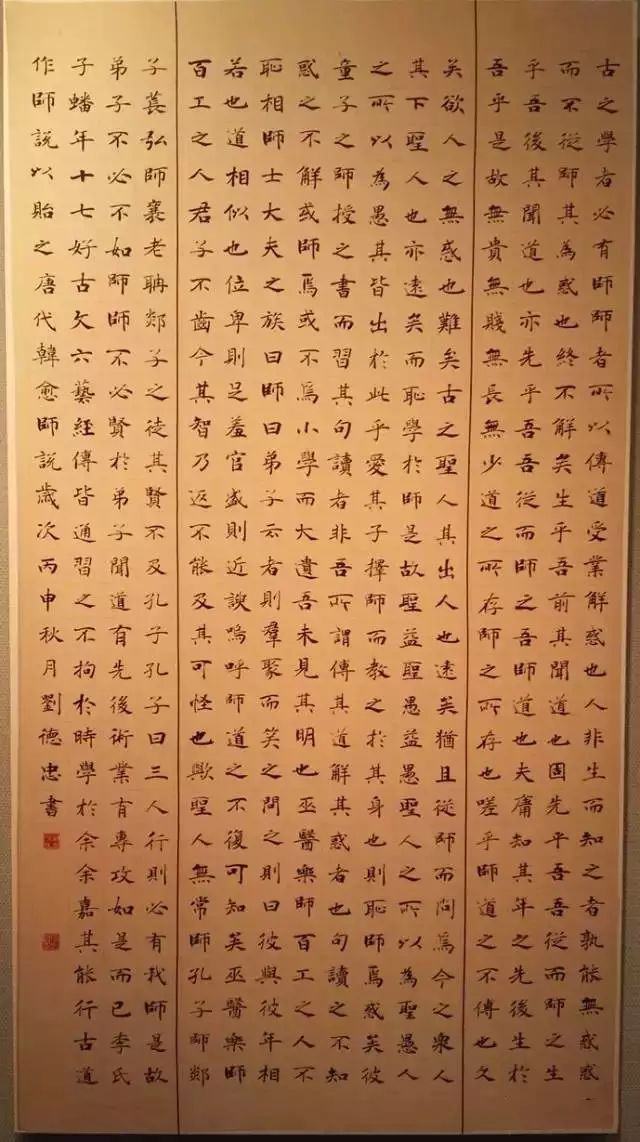 古之學者必有師師者所以傳道受業解惑也人非生而知之者孰能無惑惑
而不從師其為惑也終不解矣生乎吾前其聞道也固先乎吾吾從而師之生
乎吾後其聞道也亦先乎吾吾從而師之吾師道也夫庸知其年之先後生於
吾乎是故無貴無賤無長無少道之所存師之所存也嗟乎師道之不傳也久
矣欲人之無惑也難矣古之聖人其出人也遠矣猶且從師而問焉今之眾人
其下聖人也亦遠矣而恥學於師是故聖益聖愚益愚聖人之所以為聖愚人
之所以為愚其皆出於此乎愛其子擇師而教之於其身也則恥師焉惑矣彼
童子之師授之書而習其句讀者非吾所謂傳其道解其惑者也句讀之不知
惑之不解或師焉或不焉小學而大遺吾未見其明也巫醫樂師百工之人不
恥相師士大夫之族曰師曰弟子云者則羣聚而笑之問之則曰彼與彼年相
若也道相似也位卑則足羞官盛則近諛嗚呼師道之不復可知矣巫醫樂師
百工之人君子不齒今其智乃返不能及其可怪也歟聖人無常師孔子師郯
子萇弘師襄老聃郯子之徒其賢不及孔子孔子曰三人行則必有我師是故
弟子不必不如師師不必賢於弟子聞道有先後術業有專攻如是而已李氏
子蟠年十七好古文六藝經傳皆通習之不拘於時學於余余嘉其能行古道
作師說以貽之唐代韓愈師說歲次丙申秋月劉德忠書